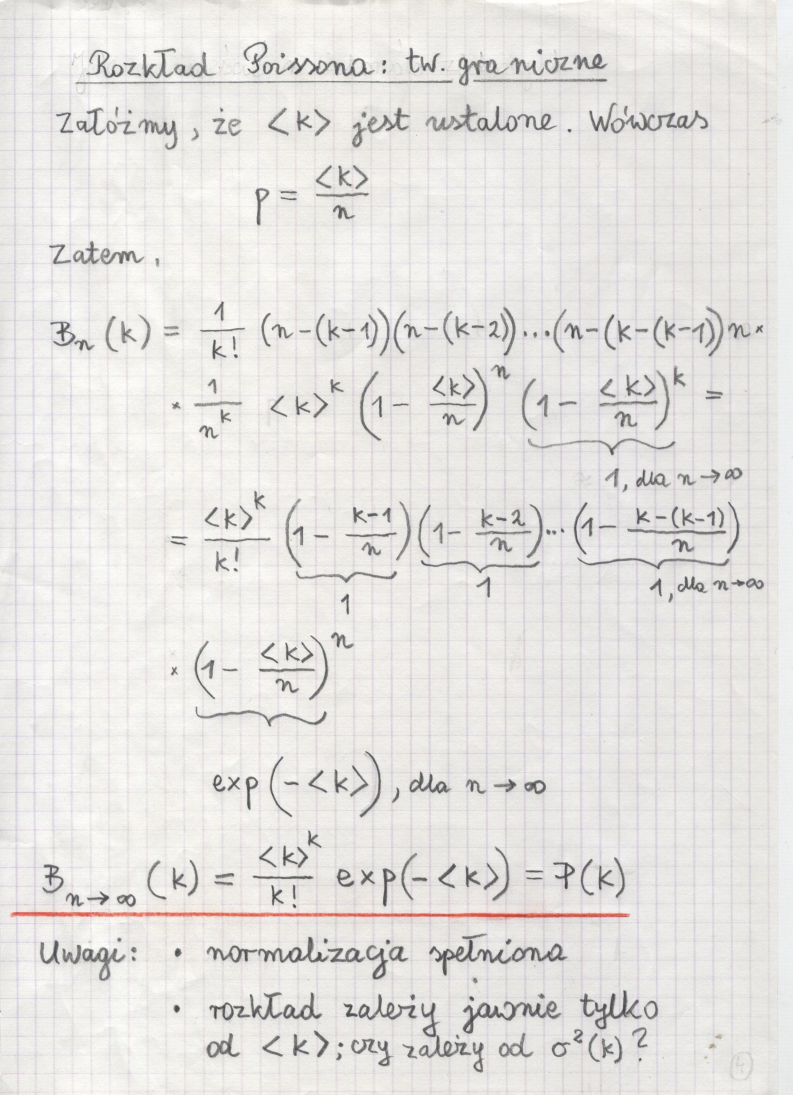 Rozkład Poissona: tw. graniczne
Załóżmy, że <k> jest ustalone. Wówczas
p = <k>/n
Zatem,
Bₙ(k) = 1/k! (n-(k-1))(n-(k-2))...(n-(k-(k-1)) n ×
× 1/nᵏ <k>ᵏ (1 - <k>/n)ⁿ (1 - <k>/n)ᵏ =
1, dla n→∞
= <k>ᵏ/k! (1 - (k-1)/n)(1 - (k-2)/n)...(1 - (k-(k-1))/n)
1 1 1, dla n→∞
× (1 - <k>/n)ⁿ
exp(-<k>), dla n→∞
Bₙ→∞(k) = <k>ᵏ/k! exp(-<k>) = P(k)
Uwagi: • normalizacja spełniona
• rozkład zależy jawnie tylko
od <k>; czy zależy od σ²(k)?
4